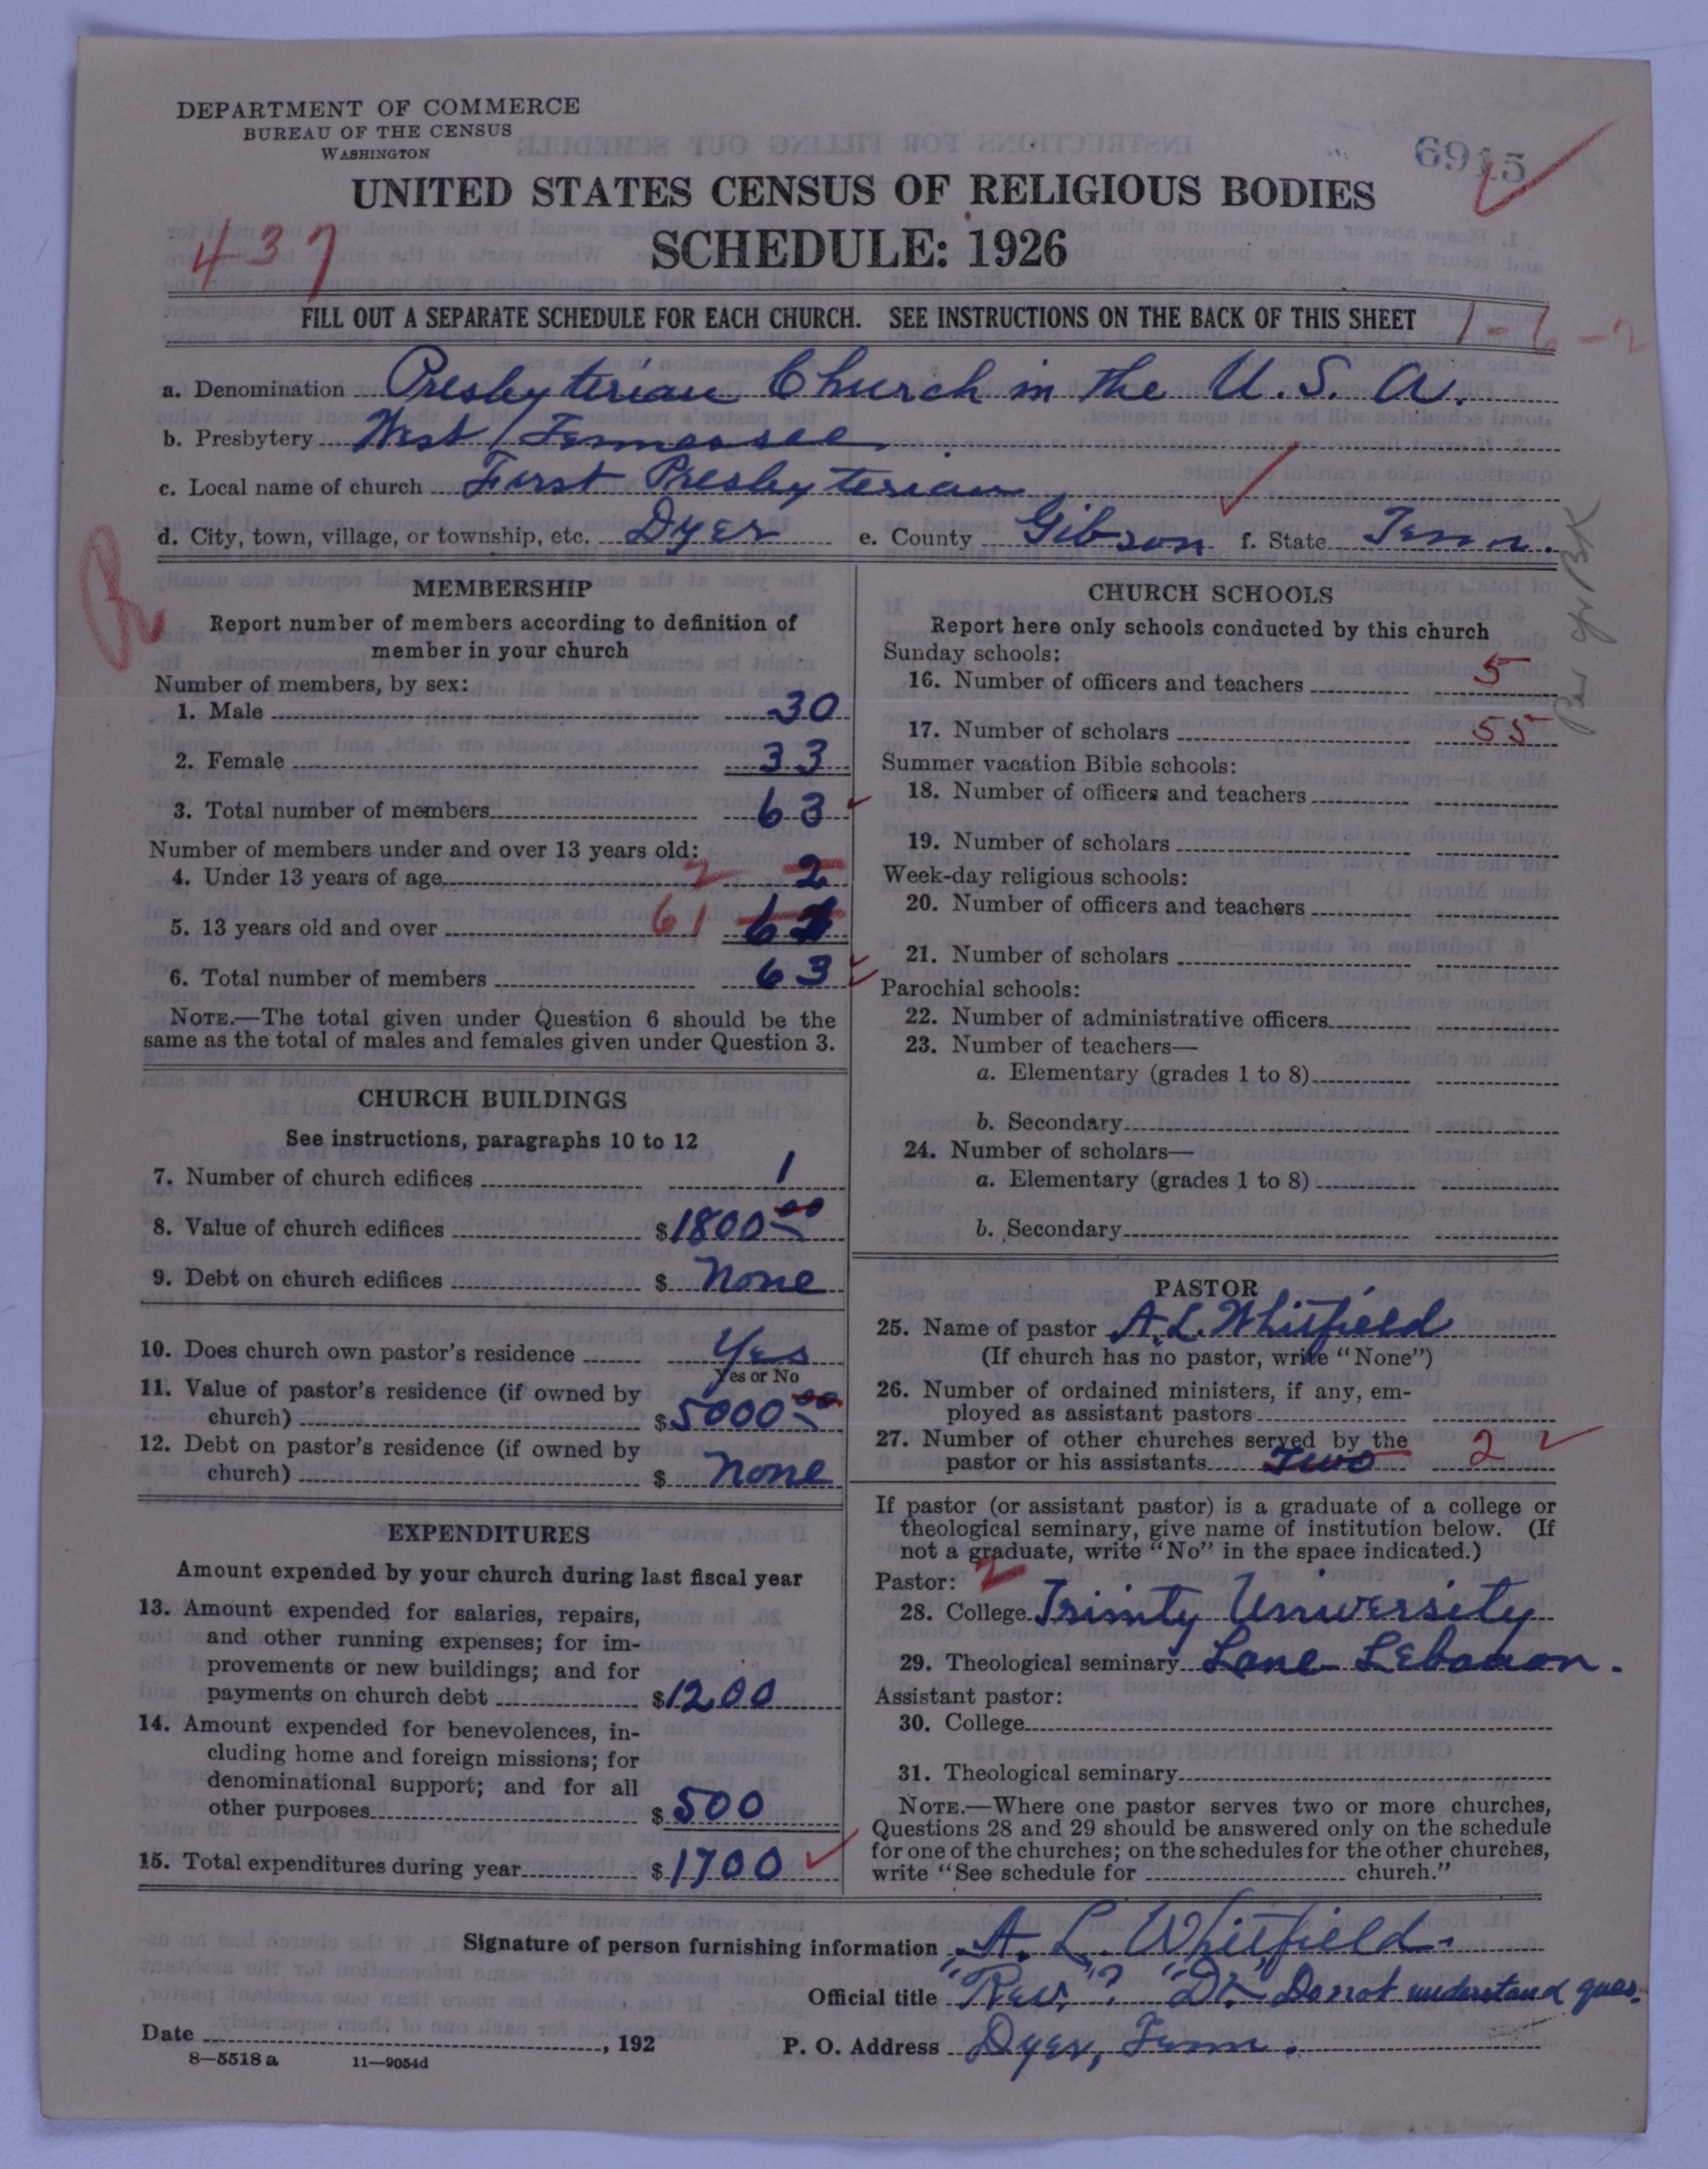 DEPARTMENT OF COMMERCE
BUREAU OF THE CENSUS
WASHINGTON
6915
UNITED STATES CENSUS OF RELIGIOUS BODIES
437
SCHEDULE: 1926
FILL OUT A SEPARATE SCHEDULE FOR EACH CHURCH. SEE INSTRUCTIONS ON THE BACK OF THIS SHEET
1-6-2
a. Denomination Presbyterian Church in the U. S. A.
b. Presbytery West Tennessee
c. Local name of church First Presbyterian
d. City, town, village, or township, etc. Dyer e. County Gibson f. State Tenn.
MEMBERSHIP
Report number of members according to definition of
member in your church
Number of members, by sex:
1. Male 30
2. Female 33
3. Total number of members 63
Number of members under and over 13 years old:
4. Under 13 years of age 2 2
5. 13 years old and over 61
6. Total number of members 63
NOTE.—The total given under Question 6 should be the
same as the total of males and females given under Question 3.
CHURCH BUILDINGS
See instructions, paragraphs 10 to 12
7. Number of church edifices 1
8. Value of church edifices $1800 00
9. Debt on church edifices $ None
10. Does church own pastor's residence Yes
Yes or No
11. Value of pastor's residence (if owned by
church) $5000 00
12. Debt on pastor's residence (if owned by
church) $ None
EXPENDITURES
Amount expended by your church during last fiscal year
13. Amount expended for salaries, repairs,
and other running expenses; for im-
provements or new buildings; and for
payments on church debt $1200
14. Amount expended for benevolences, in-
cluding home and foreign missions; for
denominational support; and for all
other purposes $500
15. Total expenditures during year $1700
CHURCH SCHOOLS
Report here only schools conducted by this church
Sunday schools:
16. Number of officers and teachers 5
17. Number of scholars 55
Summer vacation Bible schools:
18. Number of officers and teachers
19. Number of scholars
Week-day religious schools:
20. Number of officers and teachers
21. Number of scholars
Parochial schools:
22. Number of administrative officers
23. Number of teachers—
a. Elementary (grades 1 to 8)
b. Secondary
24. Number of scholars—
a. Elementary (grades 1 to 8)
b. Secondary
per yr BK
PASTOR
25. Name of pastor A. L. Whitfield
(If church has no pastor, write "None")
26. Number of ordained ministers, if any, em-
ployed as assistant pastors
27. Number of other churches served by the
pastor or his assistants Two 2
If pastor (or assistant pastor) is a graduate of a college or
theological seminary, give name of institution below. (If
not a graduate, write "No" in the space indicated.)
Pastor: 2
28. College Trinity University
29. Theological seminary Lane Lebanon.
Assistant pastor:
30. College
31. Theological seminary
NOTE.—Where one pastor serves two or more churches,
Questions 28 and 29 should be answered only on the schedule
for one of the churches; on the schedules for the other churches,
write "See schedule for church."
Signature of person furnishing information A. L. Whitfield.
Official title "Rev."? "Dr." Do not understand ques.
Date , 192
P. O. Address Dyer, Tenn.
8—5518 a 11—9054d